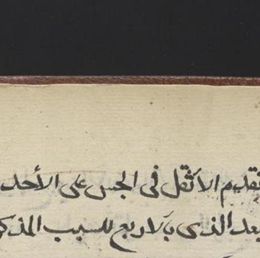 تقديم الاثقل فى الجس على الأحد
بعد الذى بالاربع للسبب المذكو